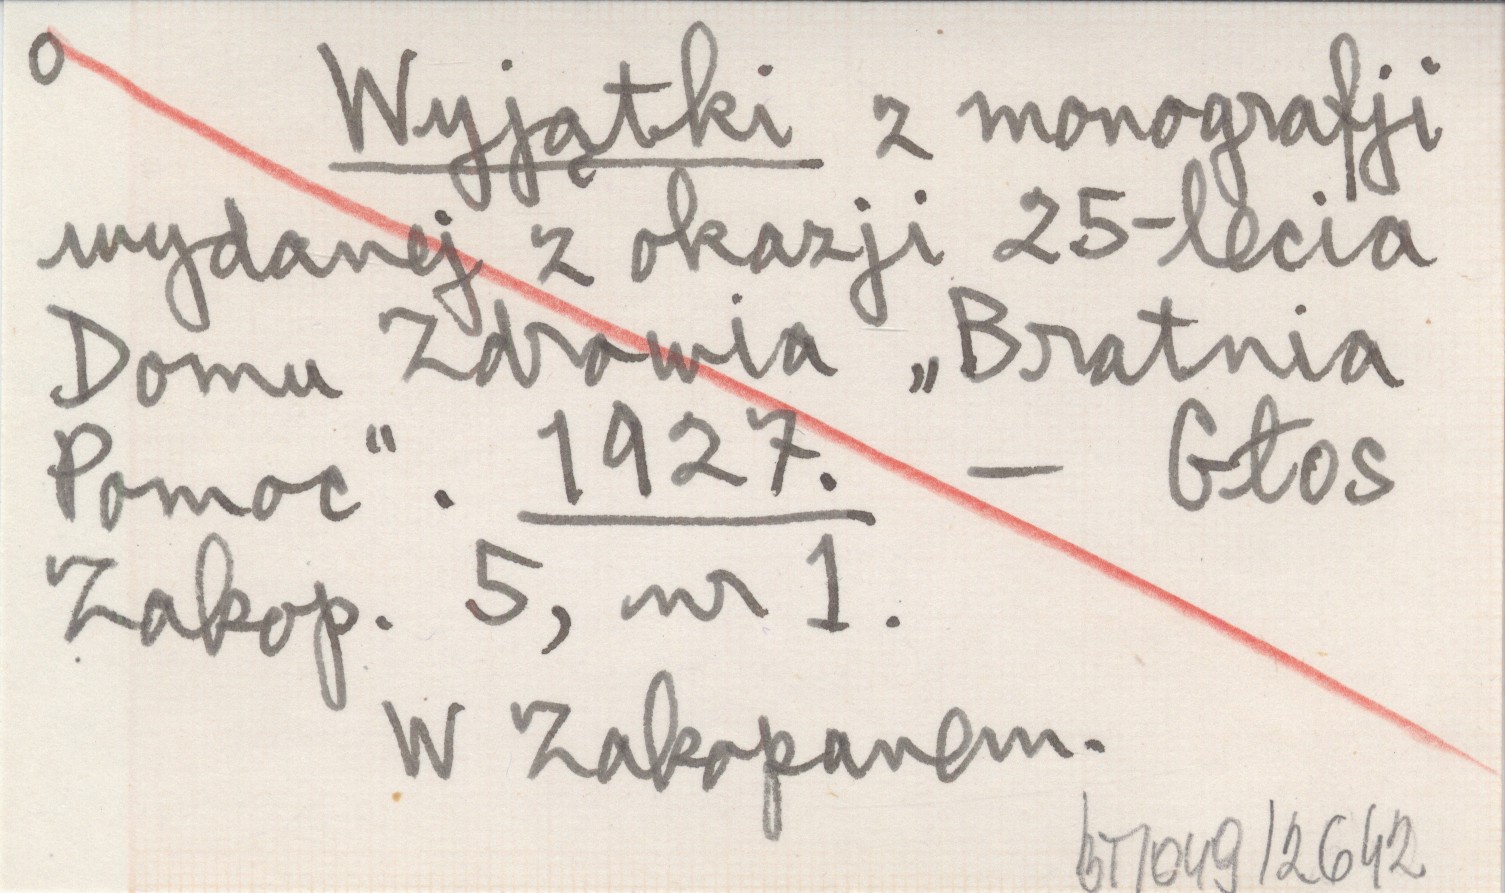 o Wyjątki z monografji
wydanej z okazji 25-lecia
Domu Zdrowia „Bratnia
Pomoc“. 1927. — Głos
Zakop. 5, nr 1.
W Zakopanem.
BT/049/2642